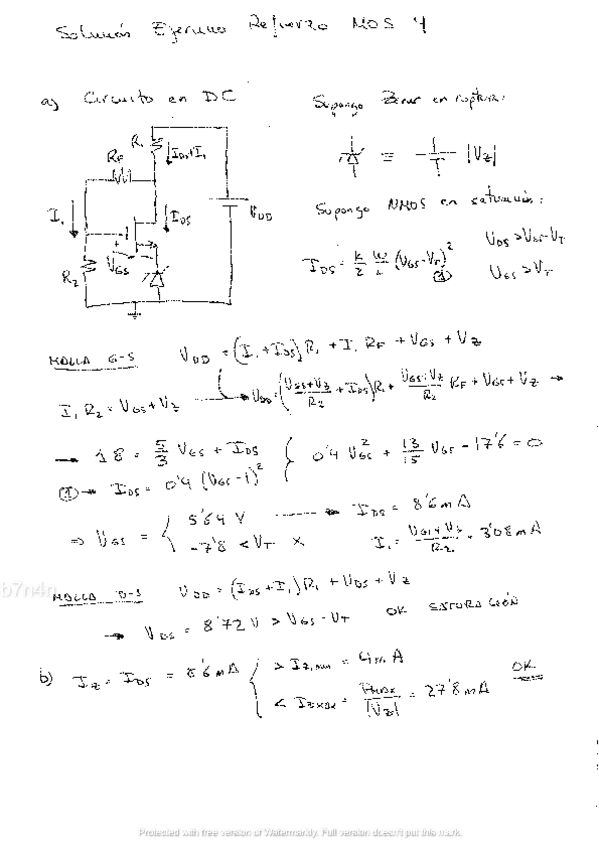 Solución Ejercicio Refuerzo MOS 4
a) Circuito en DC
Supongo Zener en ruptura:
R1
IDS+I1
RF
≡ |VZ|
I1
IDS
VDD
Supongo NMOS en saturación:
+ VGS -
R2
IDS = K/2 W/L (VGS-VT)² ①
VDS > VGS-VT
VGS > VT
MALLA G-S VDD = (I1+IDS)R1 + I1 RF + VGS + VZ
I1 R2 = VGS+VZ → VDD = ((VGS+VZ)/R2 + IDS)R1 + (VGS+VZ)/R2 RF + VGS + VZ →
→ 18 = 5/3 VGS + IDS
① → IDS = 0'4 (VGS-1)²
0'4 VGS² + 13/15 VGS - 17'6 = 0
⇒ VGS = 5'64 V → IDS = 8'6 mA
-7'8 < VT X I1 = (VGS+VZ)/R2 = 3'08 mA
MALLA D-S VDD = (IDS+I1)R1 + VDS + VZ
→ VDS = 8'72 V > VGS - VT OK SATURACIÓN
b) IZ = IDS = 8'6 mA > IZ,min = 4 mA
< IZMAX = PMAX/|VZ| = 27'8 mA OK
b7n4n
Protected with free version of Watermarkly. Full version doesn't put this mark.